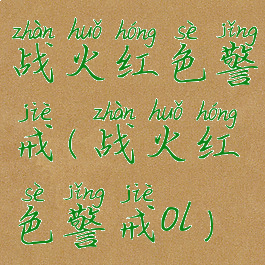 zhàn huǒ hóng sè jǐng
战火红色警
jiè zhàn huǒ hóng
戒(战火红
sè jǐng jiè
色警戒Ol)